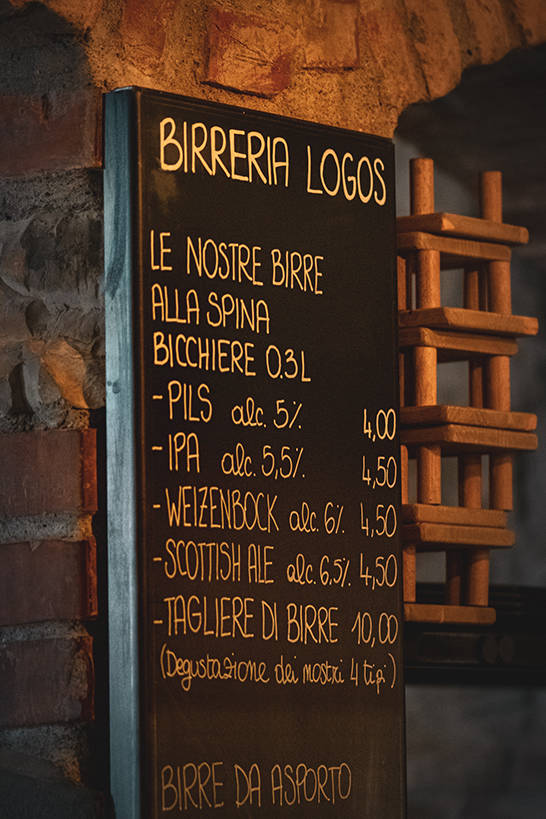 BIRRERIA LOGOS
LE NOSTRE BIRRE
ALLA SPINA
BICCHIERE 0.3L
-PILS alc. 5% 4,00
-IPA alc. 5,5% 4,50
-WEIZENBOCK alc. 6% 4,50
-SCOTTISH ALE alc. 6,5% 4,50
-TAGLIERE DI BIRRE 10,00
(Degustazione dei nostri 4 tipi)
BIRRE DA ASPORTO